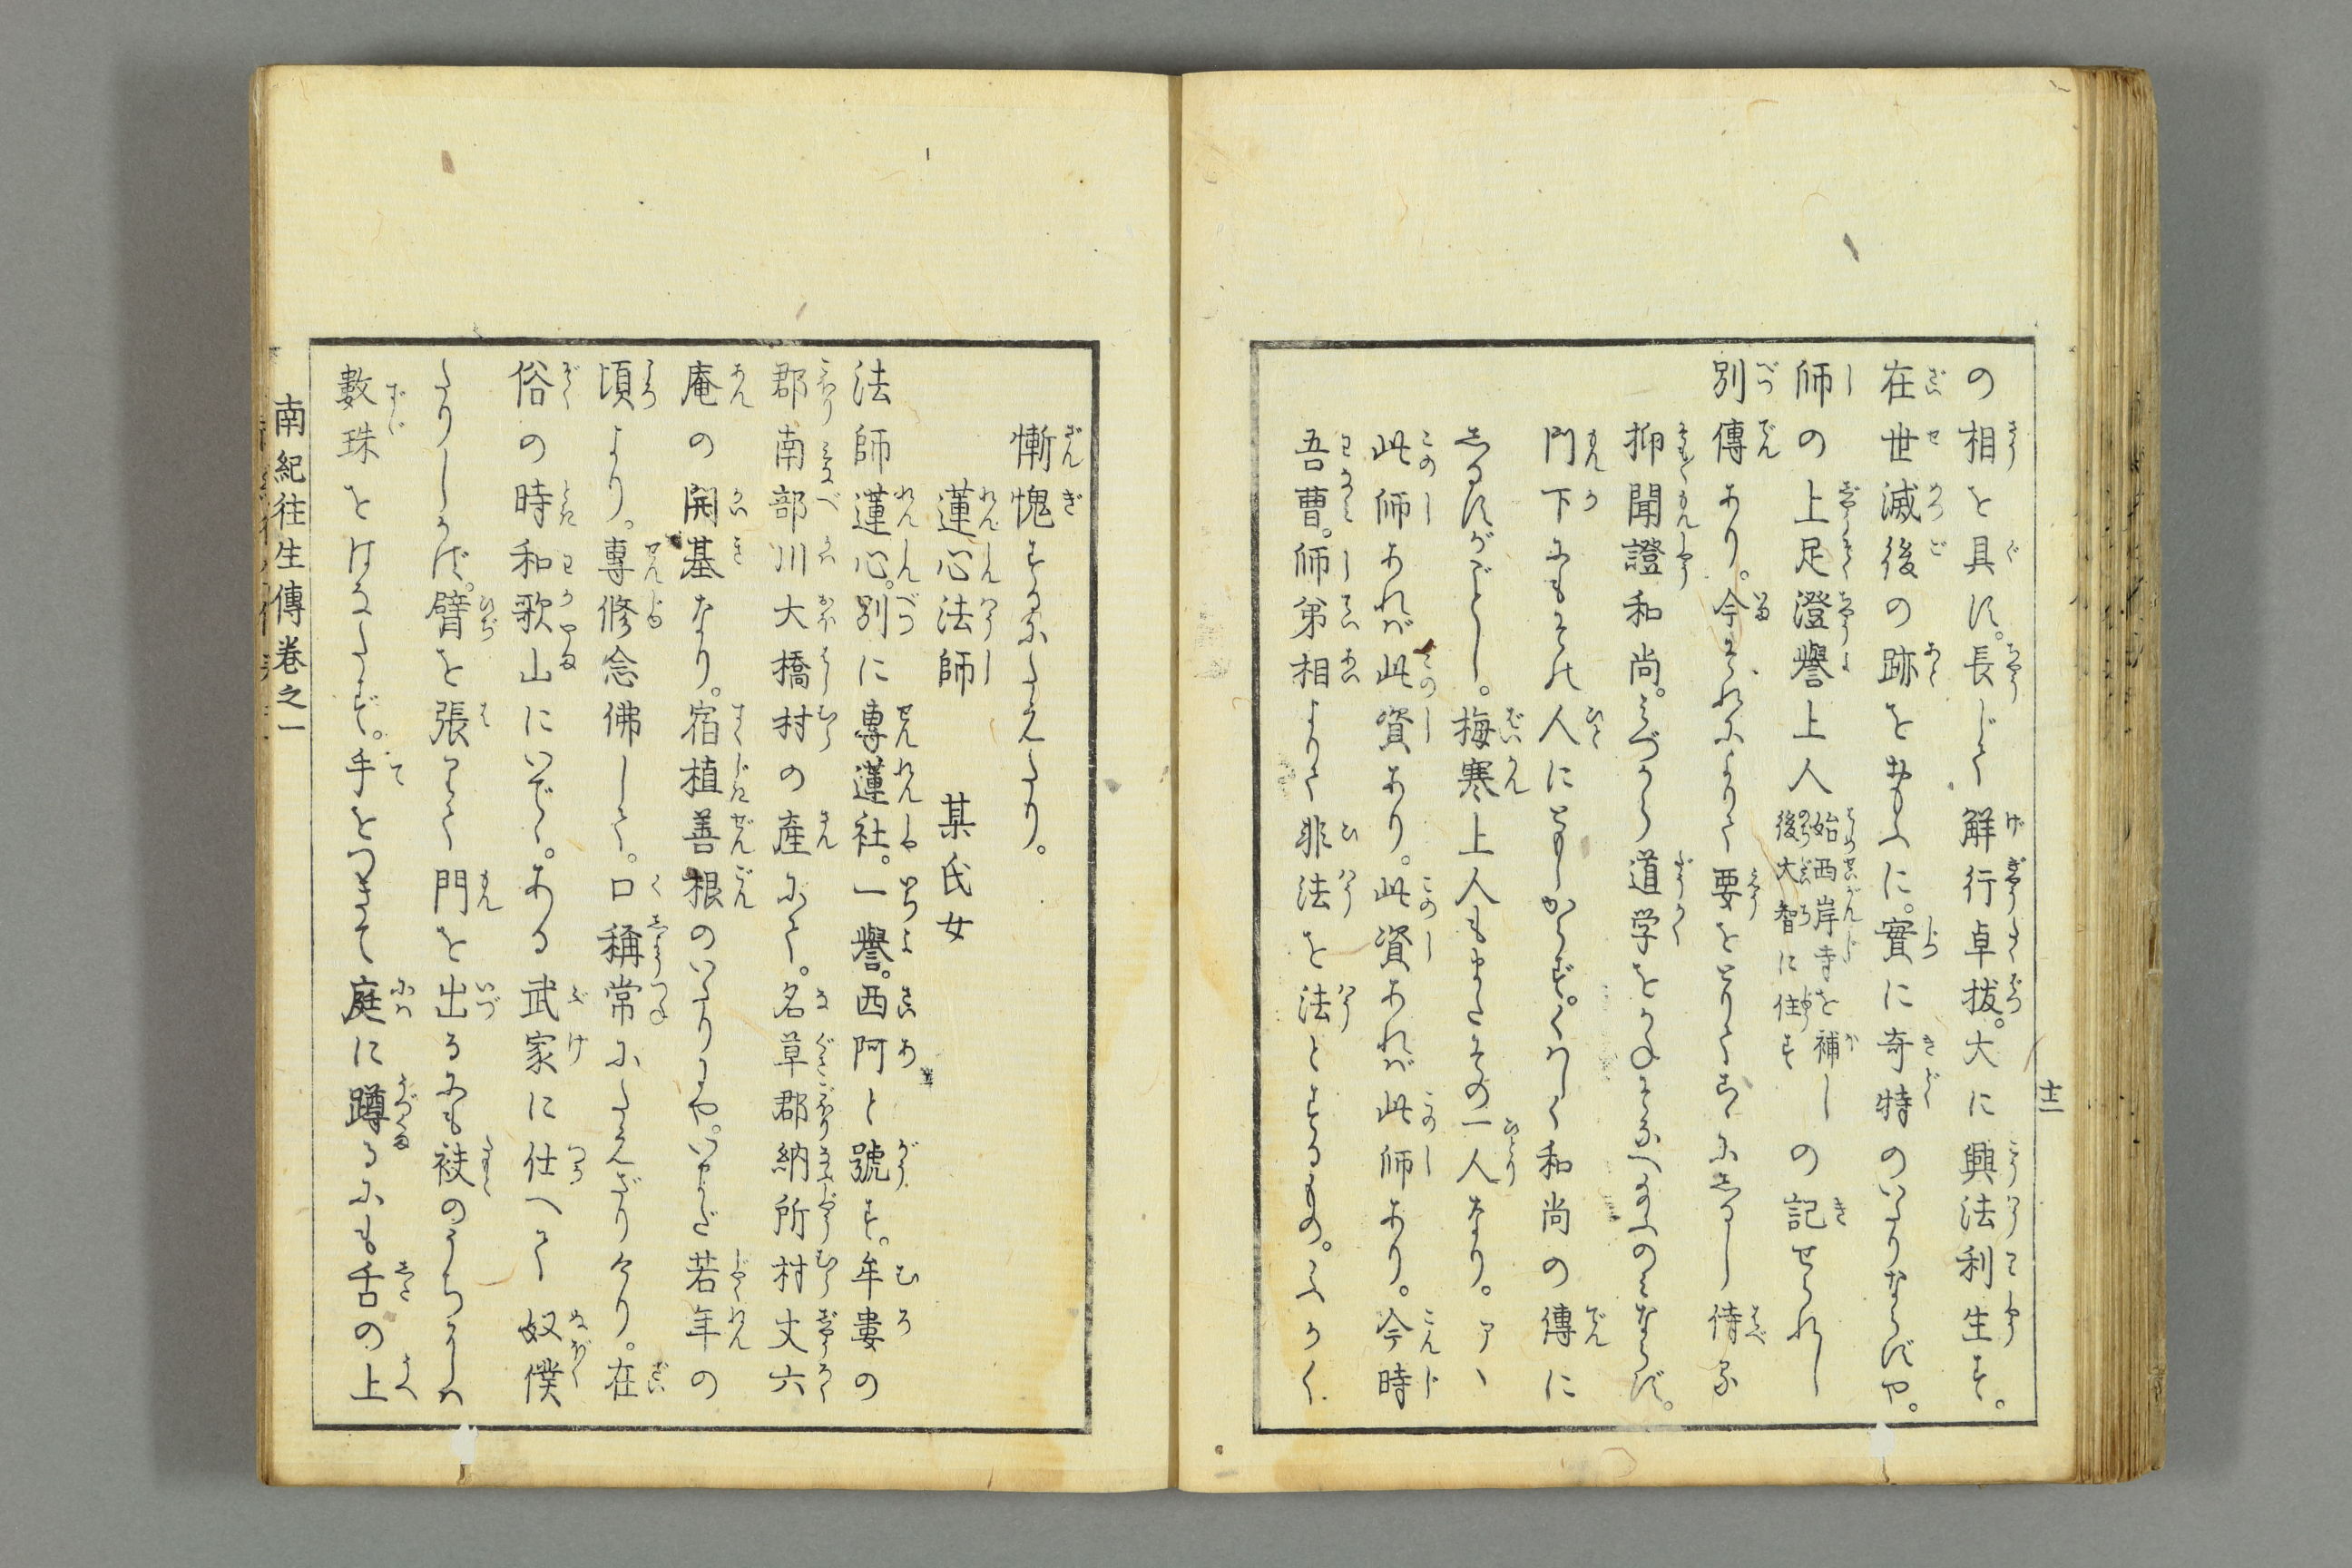 の相を具す。長じて解行卓抜。大に興法利生す。
在世滅後の跡をおもふに。實に奇特のいたりならずや。
師の上足澄譽上人
始西岸寺を補し
後大智に住す
の記せられし
別傳あり。今それによりて要をとりてこゝにしるし侍る
抑聞證和尚。みづから道学をかねそなへ給ふのみならず。
門下にもその人にともしからず。くはしく和尚の傳に
しるすがごとし。梅寒上人もまたその一人なり。アヽ
此師あれば此資あり。此資あれば此師あり。今時
吾曹。師弟相よりて非法を法とするもの。ふかく
十二
慚愧するにたえたり。
蓮心法師　某氏女
法師蓮心。別に専蓮社。一譽。西阿と號す。牟婁の
郡南部川大橋村の産にて。名草郡納所村丈六
庵の開基なり。宿植善根のいたりにや。いまだ若年の
頃より。專修念佛して。口稱常にたえざりけり。在
俗の時和歌山にいで。ある武家に仕へて奴僕
たりしかば。臂を張りて門を出るにも袂のうちには
數珠をはなたず。手をつきて庭に蹲るにも舌の上
南紀往生傳巻之一